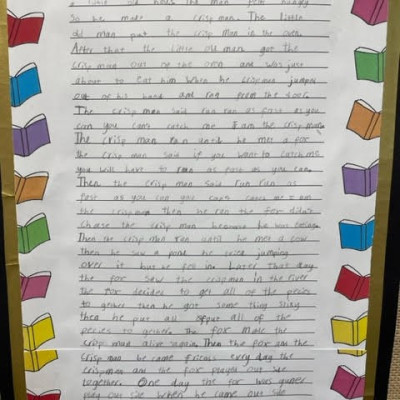 a little old man the man felt hungry
So he made a crisp man. The little
old man put the crisp man in the oven.
After that the little old man got the
crisp man out of the oven and was just
about to eat him when he crisman jumped
out of his hand and ran from the door.
The crisp man said run run as fast as you
can you cant catch me I am the crisp man
The crisp man ran until he met a fox
the crisp man said if you want to catch me
you will have to run as fast as you can.
Then the crisp man said run run as
fast as you can you cant catch me I am
the crisp man then he ran the fox didn't
chase the crisp man because he was
Then the crisp man ran until he met a cow
Then he saw a pond he tried jumping
over it but he fell in. Later that day
the fox saw the crispman in the river
the fox decided to get all of the peices
to gether then he got some thing
then he put all of all of the
peices to gether. The fox made the
crisp man alive again. Then the fox and the
crisp man be came friends every day the
crispman and the fox played out side
together. One day the fox was
play out side when he came out side